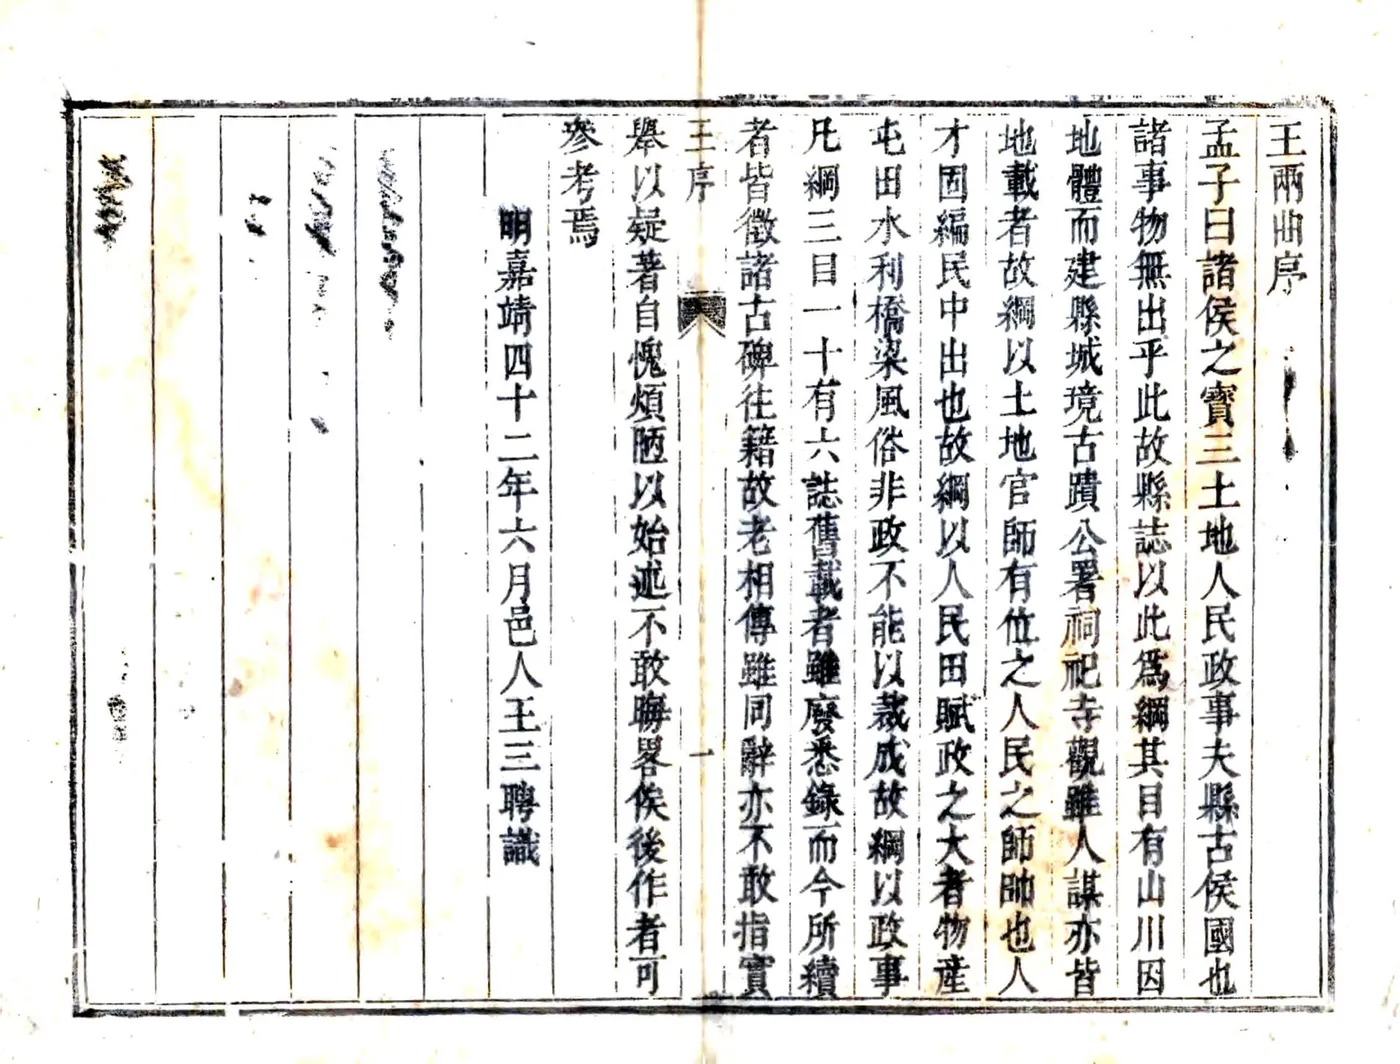 王兩曲序
孟子曰諸侯之寶三土地人民政事夫縣古侯國也
諸事物無出乎此故縣誌以此爲綱其目有山川因
地體而建縣城境古蹟公署祠祀寺觀雖人謀亦皆
地載者故綱以土地官師有位之人民之師帥也人
才固編民中出也故綱以人民田賦政之大者物產
屯田水利橋梁風俗非政不能以裁成故綱以政事
凡綱三目一十有六誌舊載者雖廢悉錄而今所續
者皆徵諸古碑往籍故老相傳雖同辭亦不敢指實
王序 一
舉以疑著自愧煩陋以始述不敢晦畧俟後作者可
參考焉
明嘉靖四十二年六月邑人王三聘識